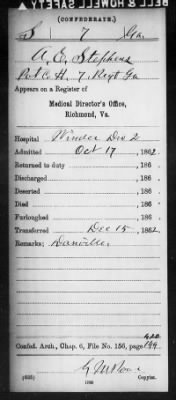 BELL & HOWELL SAFETY
(CONFEDERATE.)
S 7 Ga.
A. E. Stephens
Pvt Co H, 7 Regt Ga
Appears on a Register of
Medical Director's Office,
Richmond, Va.
Hospital Winder Div 2
Admitted Oct 17, 1862.
Returned to duty , 186 .
Discharged , 186 .
Deserted , 186 .
Died , 186 .
Furloughed , 186 .
Transferred Dec 15, 1862.
Remarks: Danville.
420
Confed. Arch., Chap. 6, File No. 156, page 194
(635) Copyist.